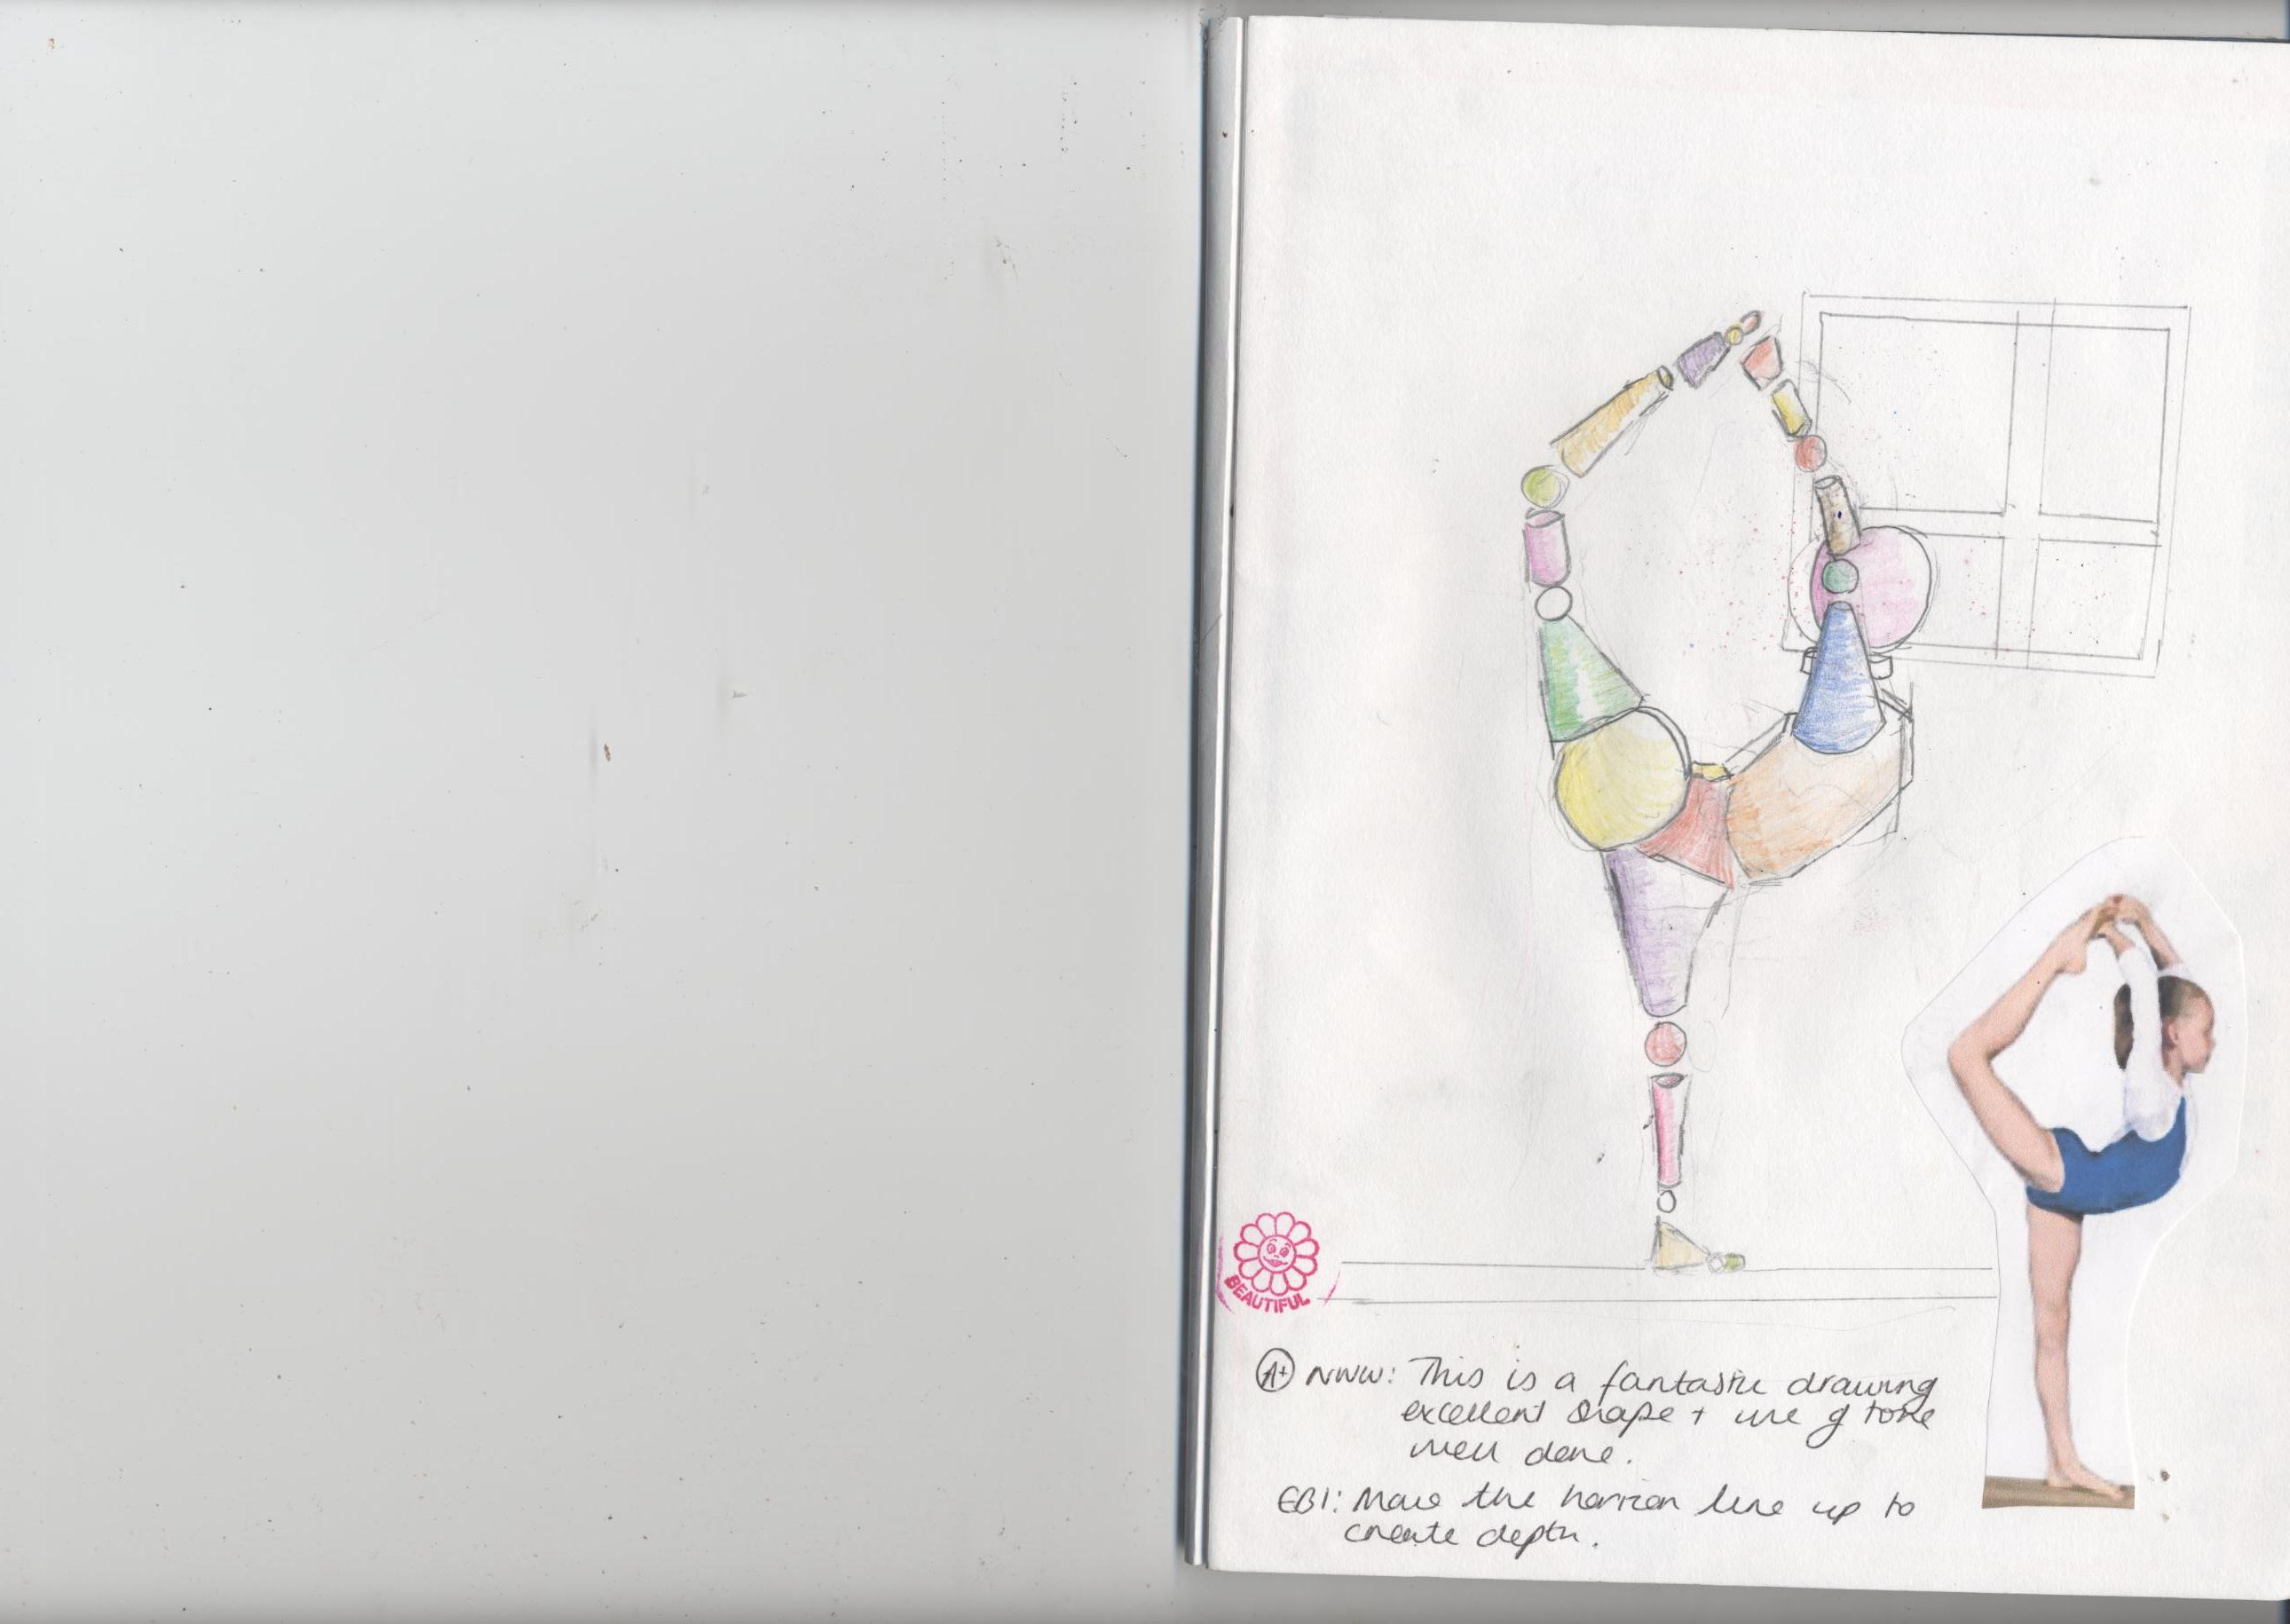 BEAUTIFUL
A+ WWW: This is a fantastic drawing
excellent shape + use of tone
well done.
EBI: Move the horizon line up to
create depth.